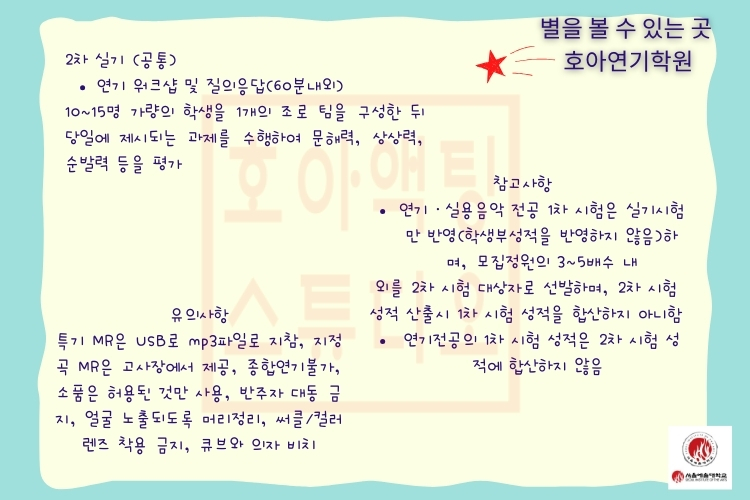 별을 볼 수 있는 곳
호아연기학원
2차 실기 (공통)
• 연기 워크샵 및 질의응답(60분내외)
10~15명 가량의 학생을 1개의 조로 팀을 구성한 뒤
당일에 제시되는 과제를 수행하여 문해력, 상상력,
순발력 등을 평가
참고사항
• 연기·실용음악 전공 1차 시험은 실기시험
만 반영(학생부성적을 반영하지 않음)하
며, 모집정원의 3~5배수 내
외를 2차 시험 대상자로 선발하며, 2차 시험
성적 산출시 1차 시험 성적을 합산하지 아니함
• 연기전공의 1차 시험 성적은 2차 시험 성
적에 합산하지 않음
유의사항
특기 MR은 USB로 mp3파일로 지참, 지정
곡 MR은 고사장에서 제공, 종합연기불가,
소품은 허용된 것만 사용, 반주자 대동 금
지, 얼굴 노출되도록 머리정리, 써클/컬러
렌즈 착용 금지, 큐브와 의자 비치
호아액팅
스튜디오
서울예술대학교
SEOUL INSTITUTE OF THE ARTS